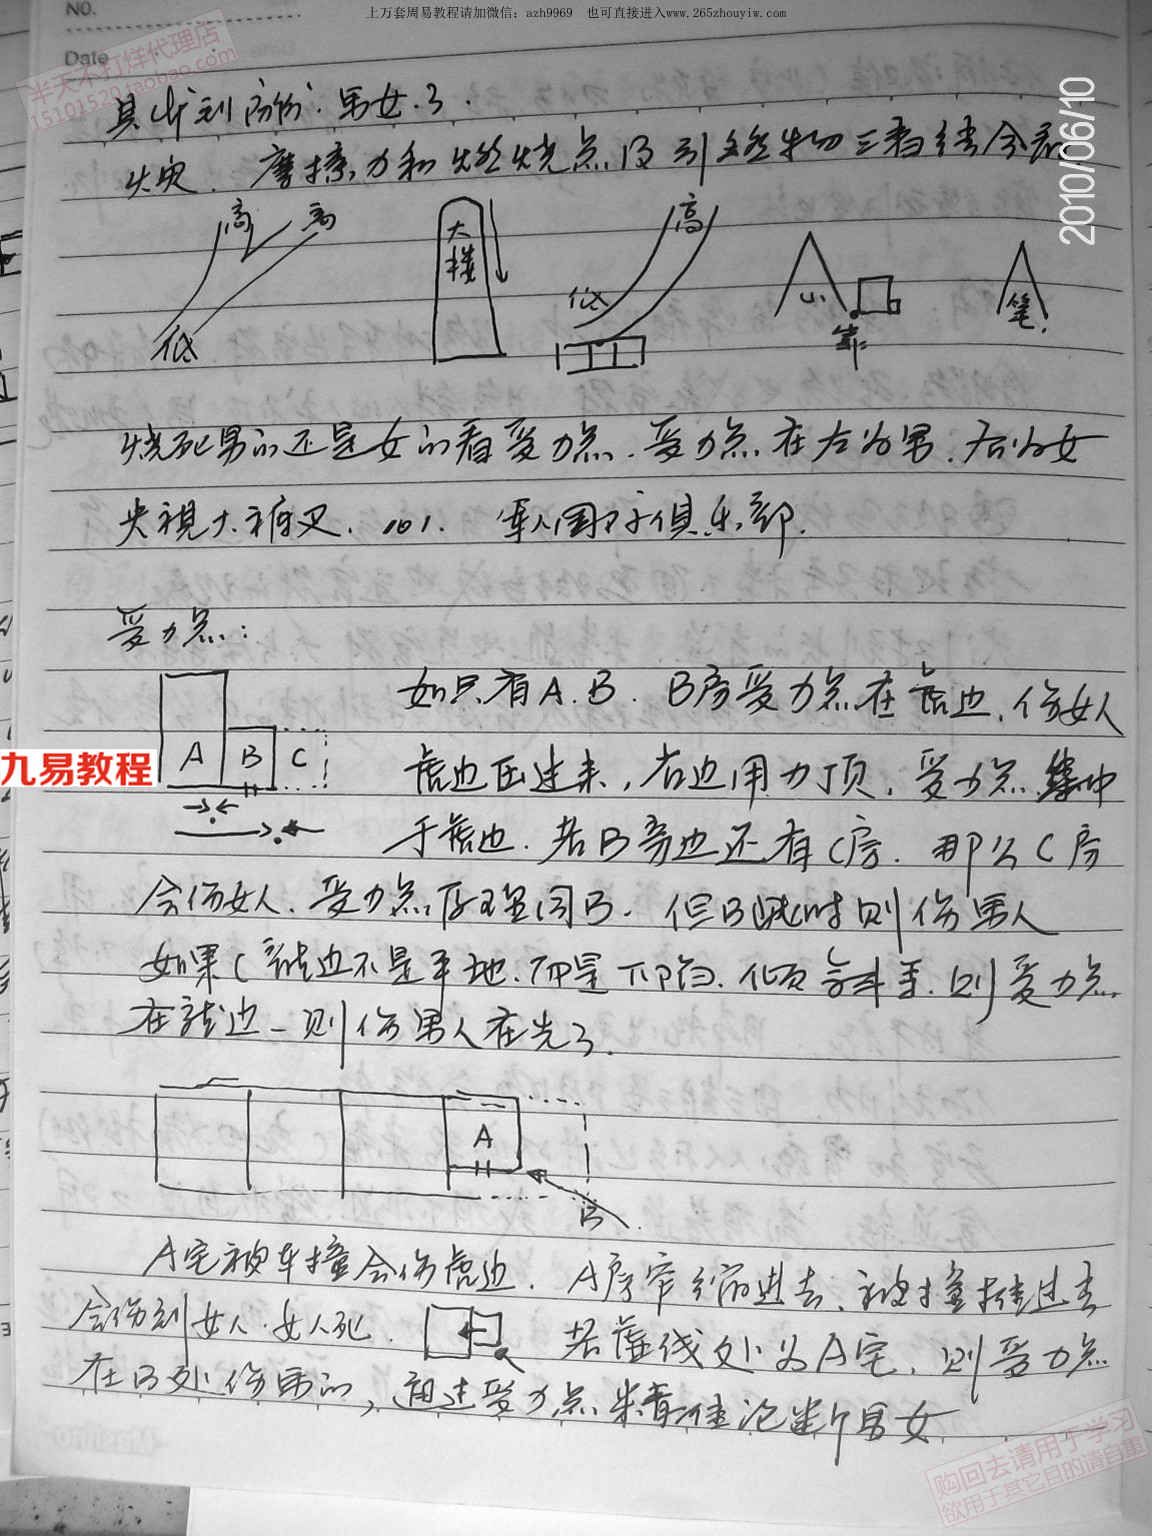 上万套周易教程请加微信：azh9969　也可直接进入www.265zhouyiw.com
NO.
Date
半天不打烊代理店
15101520.taobao.com
2010/06/10
男女了.
火灾. 摩擦力和燃烧点及引燃物三者结合
高 高
低
大楼
高
低
山
靠
笔.
烧死男的还是女的看受力点. 受力点在左为男. 右为女
央视大裤叉. 101. 军人国际俱乐部.
受力点:
如只有A.B. B房受力点在虎边, 伤女人
A B C
九易教程
虎边压过来, 右边用力顶, 受力点集中
于虎边. 若B旁边还有C房. 那么C房
会伤女人. 受力点原理同B. 但B此时则伤男人
如果C龙边不是平地. 而是下陷. 倾斜 则受力点
在龙边 则伤男人在先了.
A
B
A宅被车撞会伤虎边. A房窄缩进去, 被撞挂过去
会伤到女人. 女人死. 若虚线处为A宅, 则受力点
在B处伤男的, 通过受力点来看谁 男女
购回去请用于学习
欲用于其它目的请自重